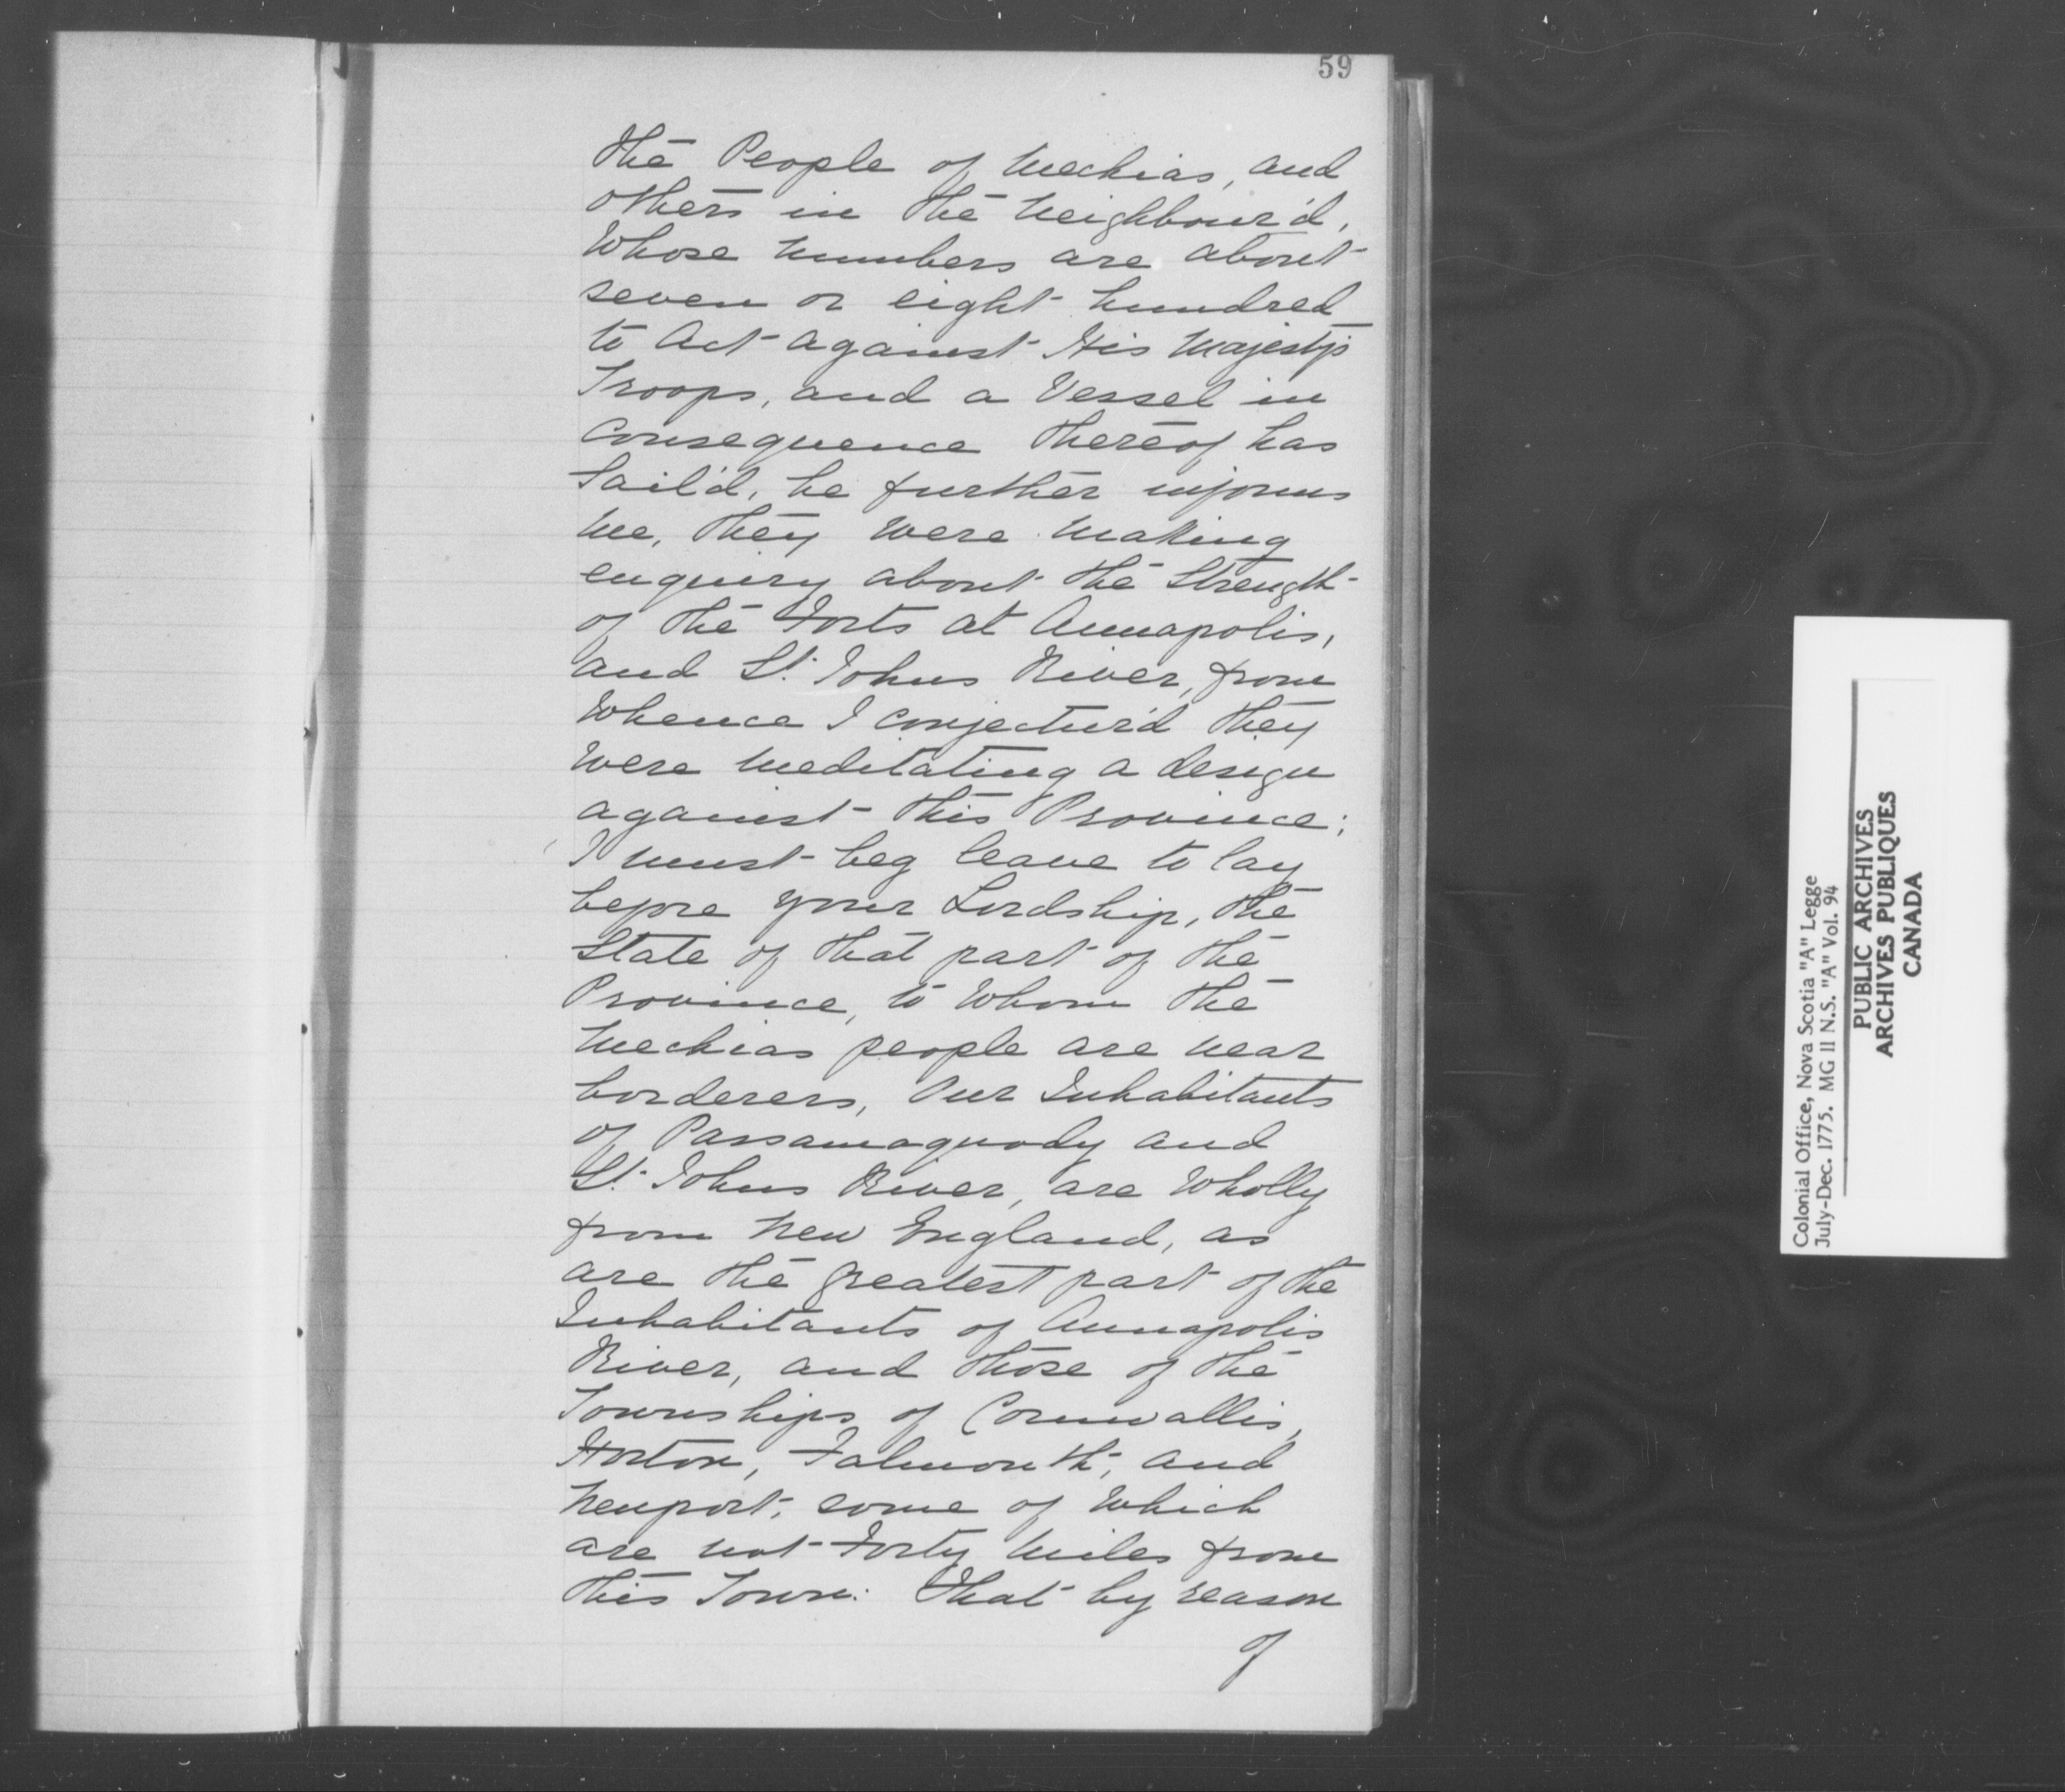 59
the People of Mechias, and
others in the Neighbour'd,
Whose Numbers are about
seven or eight hundred
to Act against His Majesty's
Troops, and a Vessel in
Consequence thereof has
Sail'd, he further informs
me, they were making
enquiry about the Strength
of the Forts at Annapolis,
and St. Johns River, from
Whence I conjectur'd they
were meditating a design
against this Province;
I must beg leave to lay
before your Lordship, the
State of that part of the
Province, to Whom the
Mechias people are near
borderers, Our Inhabitants
of Passamaquody and
St. Johns River, are Wholly
from New England, as
are the greatest part of the
Inhabitants of Annapolis
River, and those of the
Townships of Cornwallis,
Horton, Falmouth, and
Newport, some of Which
are not Forty Miles from
this Town: That by reason
of
Colonial Office, Nova Scotia "A" Legge
July-Dec. 1775. MG 11 N.S. "A" Vol. 94
PUBLIC ARCHIVES
ARCHIVES PUBLIQUES
CANADA